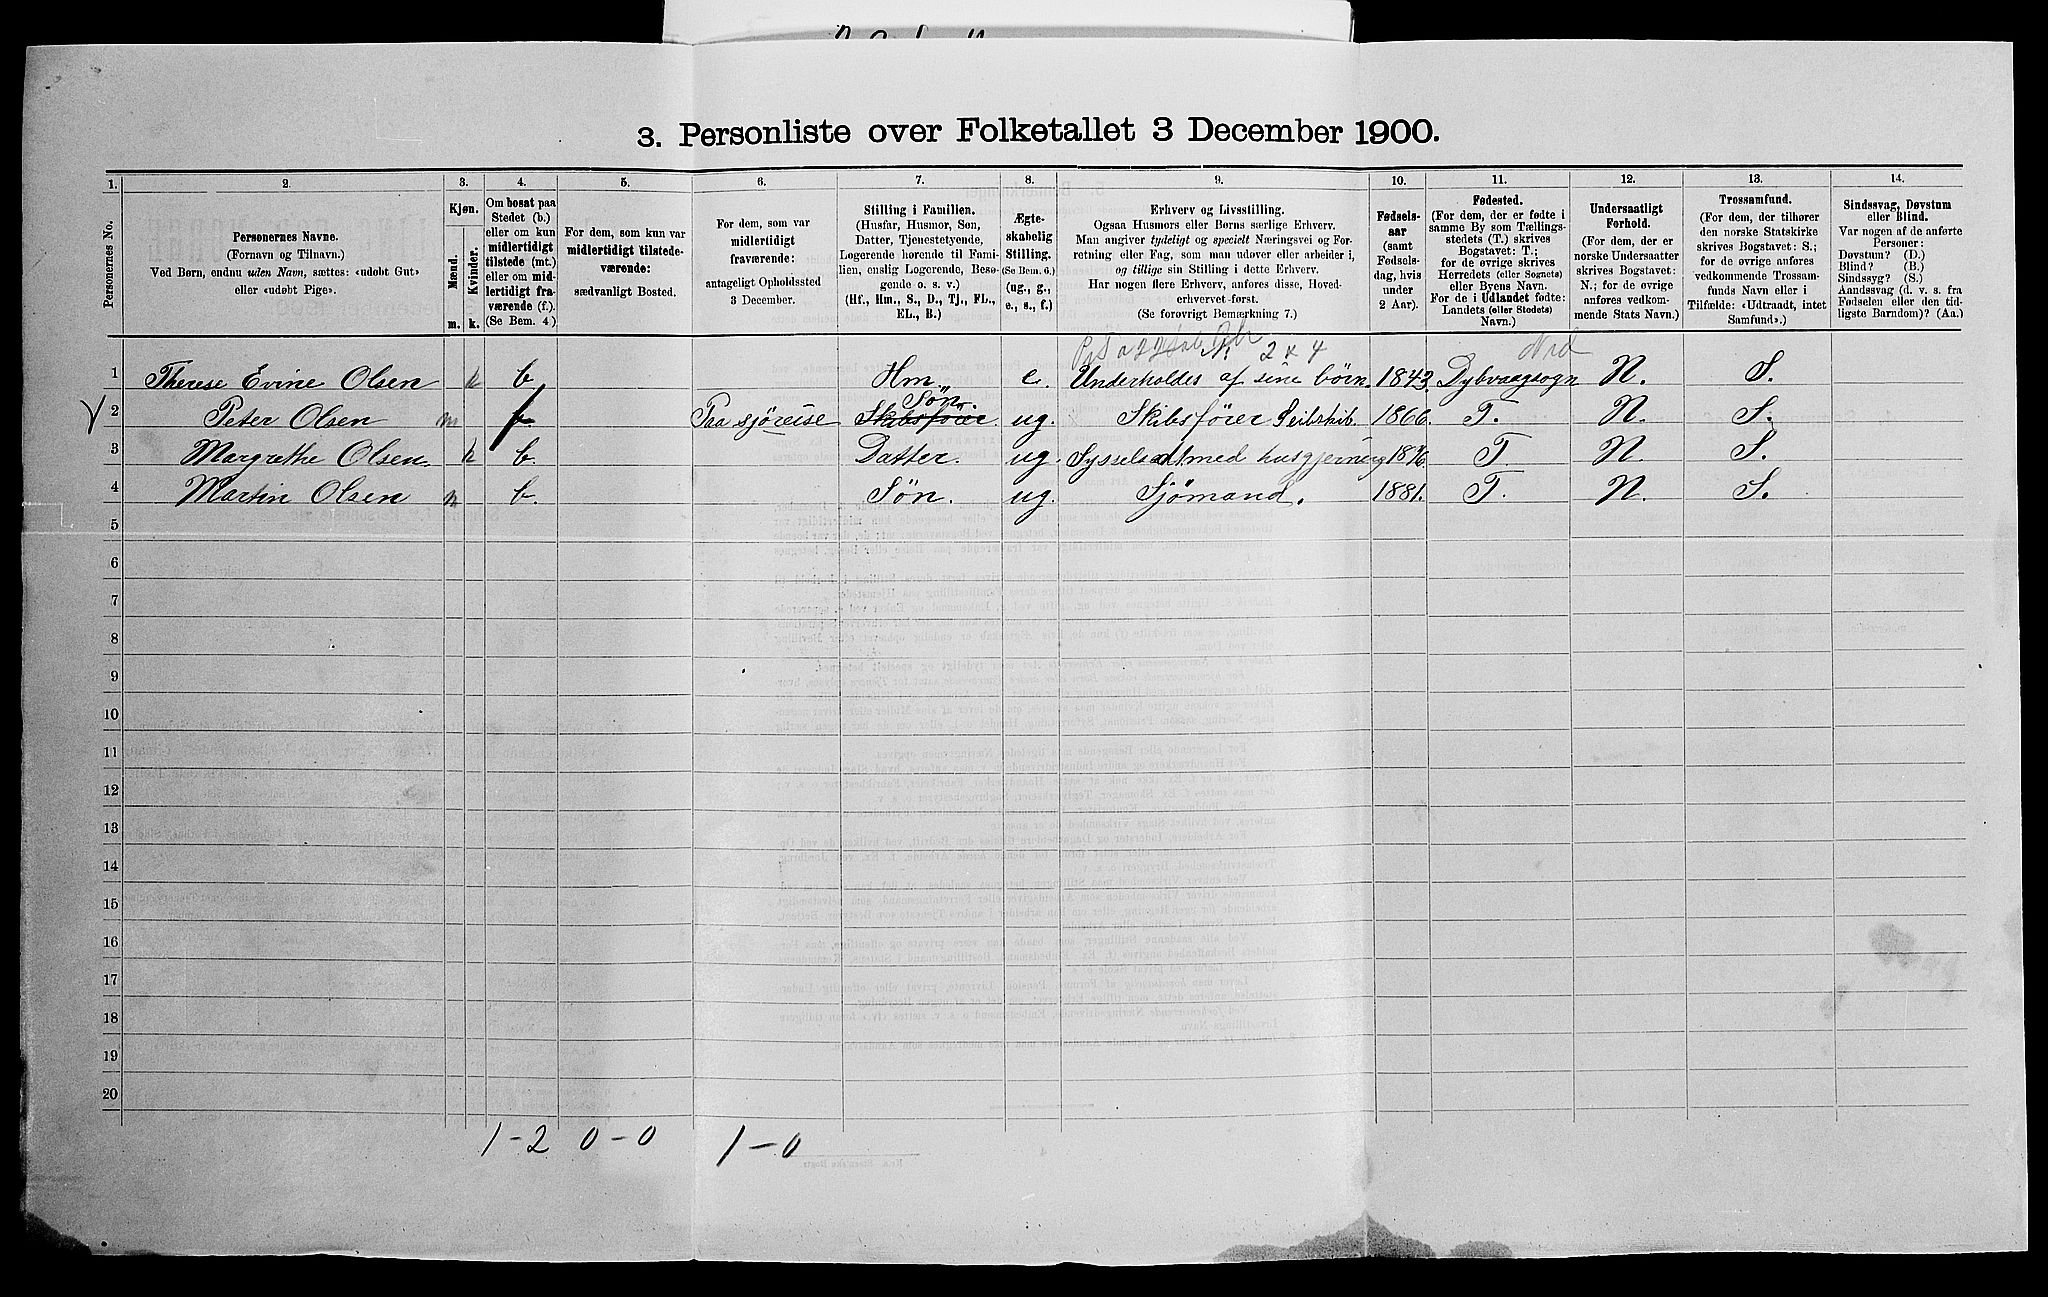 3. Personliste over Folketallet 3 December 1900.
1. 2. 3. 4. 5. 6. 7. 8. 9. 10. 11. 12. 13. 14.
Personernes No.
Personernes Navne.
(Fornavn og Tilnavn.)
Ved Børn, endnu uden Navn, sættes: «udøbt Gut»
eller «udøbt Pige».
Kjøn.
Mænd.
Kvinder.
m. k.
Om bosat paa
Stedet (b.)
eller om kun
midlertidigt
tilstede (mt.)
eller om mid-
lertidigt fra-
værende (f.).
(Se Bem. 4.)
For dem, som kun var
midlertidigt tilstede-
værende:
sædvanligt Bosted.
For dem, som var
midlertidigt
fraværende:
antageligt Opholdssted
3 December.
Stilling i Familien.
(Husfar, Husmor, Søn,
Datter, Tjenestetyende,
Logerende hørende til Fami-
lien, enslig Logerende, Besø-
gende o. s. v.)
(Hf., Hm., S., D., Tj., FL.,
EL., B.)
Ægte-
skabelig
Stilling.
(Se Bem. 6.)
(ug., g.,
e., s., f.)
Erhverv og Livsstilling.
Ogsaa Husmors eller Børns særlige Erhverv.
Man angiver tydeligt og specielt Næringsvei og For-
retning eller Fag, som man udøver eller arbeider i,
og tillige sin Stilling i dette Erhverv.
Har nogen flere Erhverv, anføres disse, Hoved-
erhvervet først.
(Se forøvrigt Bemærkning 7.)
Fødsels-
aar
(samt
Fødsels-
dag, hvis
under
2 Aar).
Fødested.
(For dem, der er fødte i
samme By som Tællings-
stedets (T.) skrives
Bogstavet: T.;
for de øvrige skrives
Herredets (eller Sognets)
eller Byens Navn.
For de i Udlandet fødte:
Landets (eller Stedets)
Navn.)
Undersaatligt
Forhold.
(For dem, der er
norske Undersaatter
skrives Bogstavet:
N.; for de øvrige
anføres vedkom-
mende Stats Navn.)
Trossamfund.
(For dem, der tilhører
den norske Statskirke
skrives Bogstavet: S.;
for de øvrige anføres
vedkommende Trossam-
funds Navn eller i
Tilfælde: «Udtraadt, intet
Samfund».)
Sindssvag, Døvstum
eller Blind.
Var nogen af de anførte
Personer:
Døvstum? (D.)
Blind? (B.)
Sindssyg? (S.)
Aandssvag (d. v. s. fra
Fødselen eller den tid-
ligste Barndom)? (Aa.)
2 x 4
1 Therese Evine Olsen k b. Hm. e. Underholdes af sine børn 1843 Dybvaagsogn N. S.
Søn.
V 2 Peter Olsen m f Paa sjöreise Skibsfører ug. Skibsfører Seilskib. 1866. T. N. S.
3 Margrethe Olsen. k b. Datter. ug. Sysselsat med husgjerning 1876 T N. S.
4 Martin Olsen m b. Søn. ug. Sjömand. 1881. T. N. S.
5
6
7
8
9
10
11
12
13
14
15
16
17
18
19
20
1-2 0-0 1-0